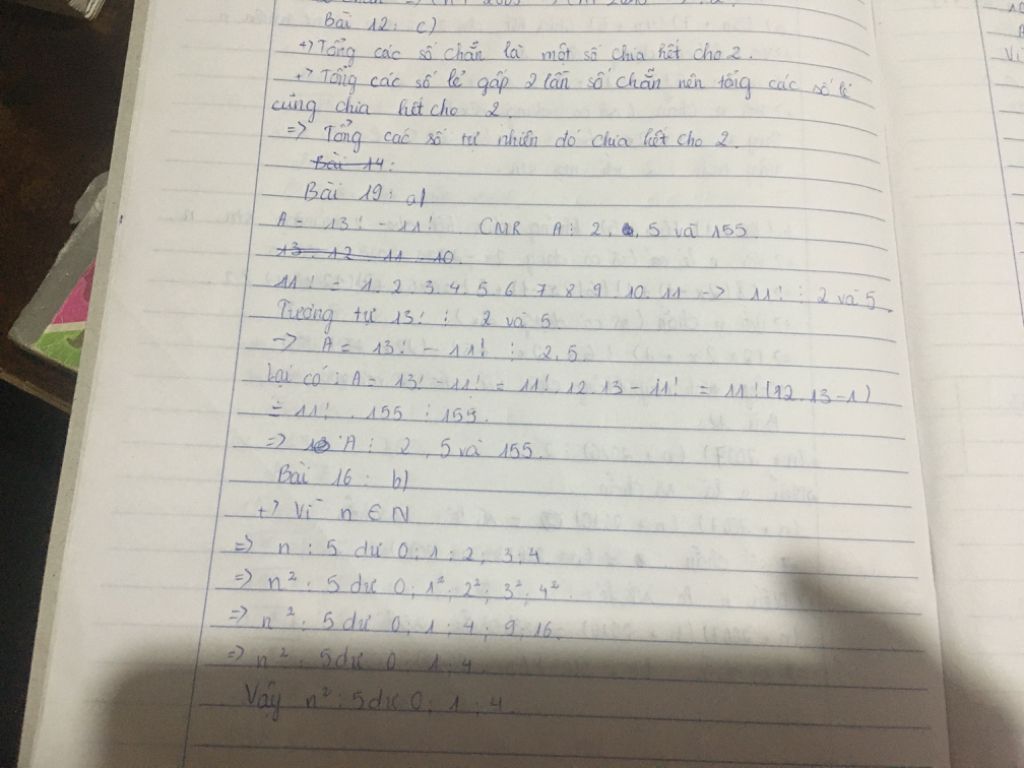 Bài 12: c)
+) Tổng các số chẵn là một số chia hết cho 2.
+) Tổng các số lẻ gấp 2 lần số chẵn nên tổng các số lẻ
cũng chia hết cho 2.
=> Tổng các số tự nhiên đó chia hết cho 2.
Bài 14:
Bài 19: a)
A = 13! - 11! CMR A ⋮ 2, 5 và 155
13 . 12 . 11 . 10
11! = 1. 2. 3. 4. 5. 6. 7. 8. 9. 10. 11 -> 11! ⋮ 2 và 5.
Tương tự 13! ⋮ 2 và 5
-> A = 13! - 11! ⋮ 2, 5
Lại có: A = 13! - 11! = 11!. 12. 13 - 11! = 11! (12. 13 - 1)
= 11! . 155 ⋮ 155.
=> A ⋮ 2, 5 và 155.
Bài 16: b)
+) Vì n ∈ N
=> n : 5 dư 0; 1; 2; 3; 4
=> n² : 5 dư 0; 1²; 2²; 3²; 4².
=> n² : 5 dư 0; 1; 4; 9; 16.
=> n² : 5 dư 0; 1; 4.
Vậy n² : 5 dư 0; 1; 4.